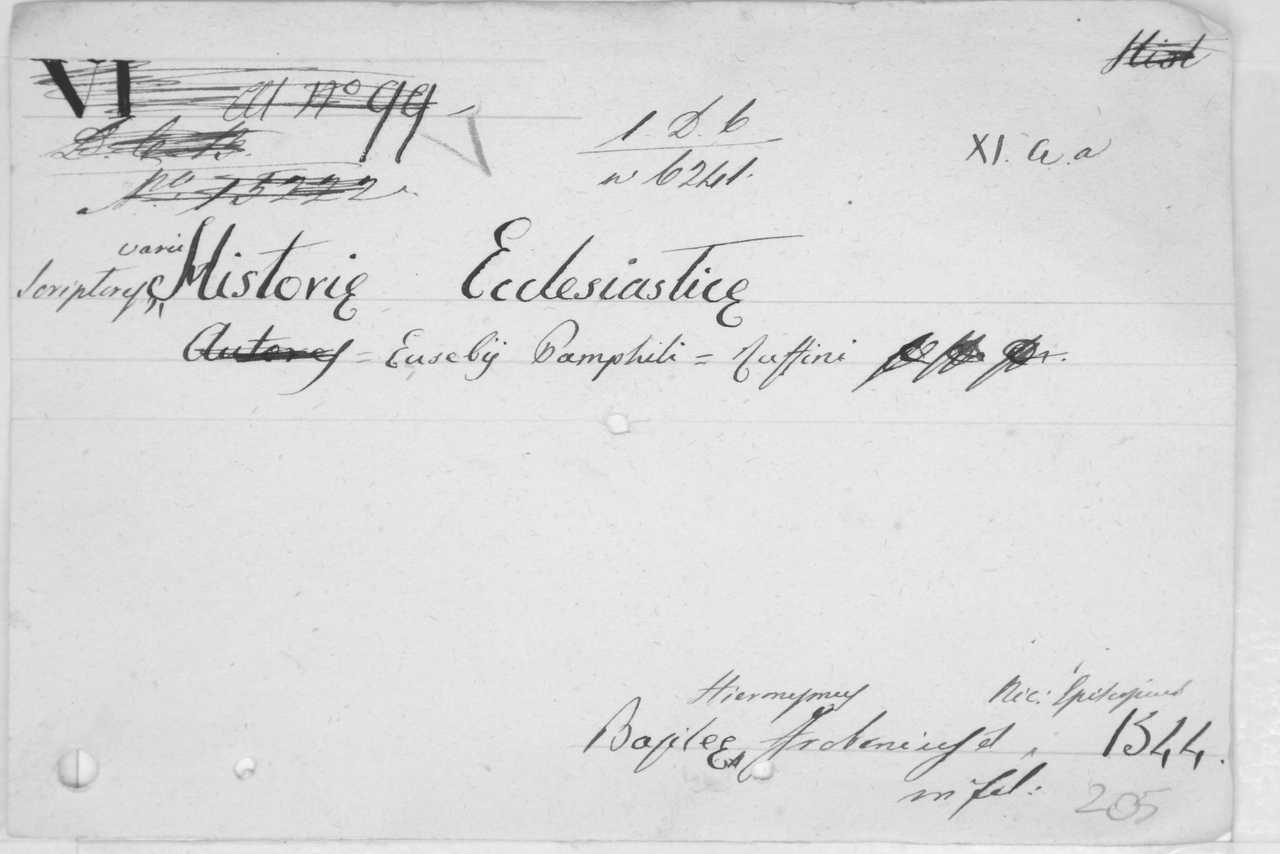 Hist
VI A N° 99
D. C. B.
N° 15222.
1. D. b
n 6241.
XI. a. a
varii
Scriptores Historię Ecclesiasticę
Autores = Eusebij Pamphili = Ruffini
Hieronymus Nic: Episcopius
Basileę Frobenius et 1544.
in fol:
205